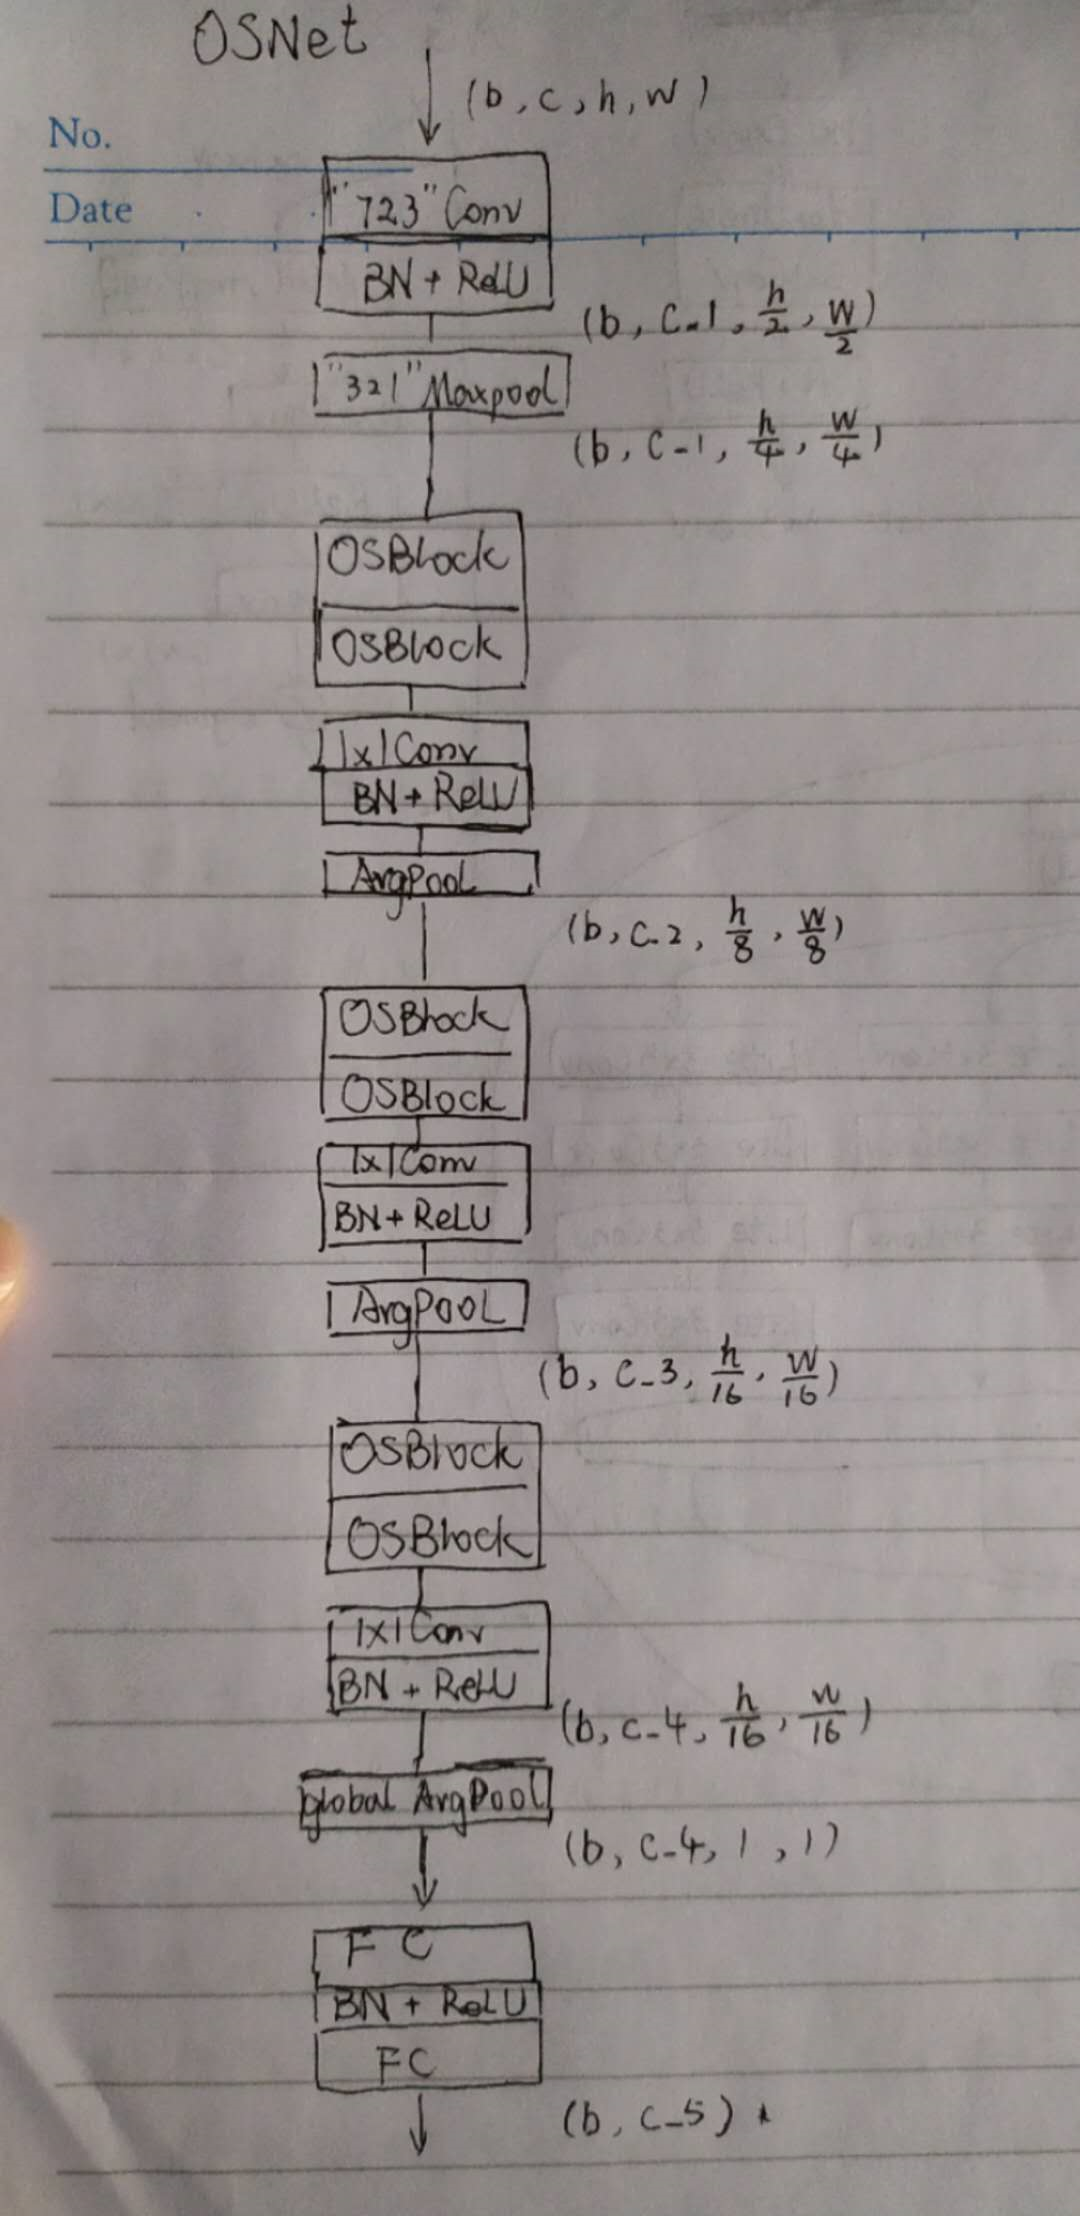 OSNet
(b, c, h, w)
No.
Date
"723" Conv
BN + ReLU
(b, c_1, h/2, w/2)
"321" Maxpool
(b, c_1, h/4, w/4)
OSBlock
OSBlock
1x1 Conv
BN + ReLU
ArgPool
(b, c_2, h/8, w/8)
OSBlock
OSBlock
1x1 Conv
BN + ReLU
ArgPooL
(b, c_3, h/16, w/16)
OSBlock
OSBlock
1x1 Conv
BN + ReLU
(b, c_4, h/16, w/16)
global ArgPool
(b, c_4, 1, 1)
FC
BN + ReLU
FC
(b, c_5)